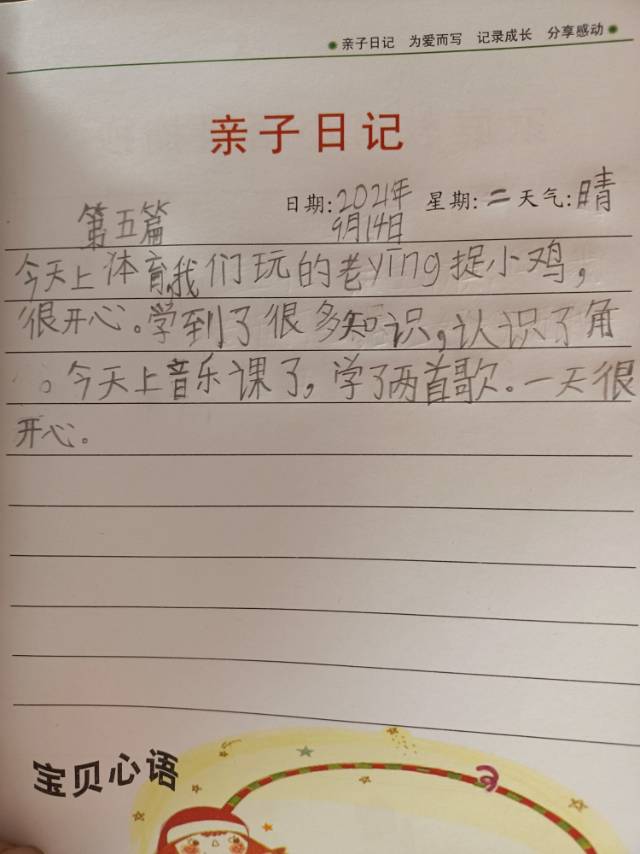 亲子日记 为爱而写 记录成长 分享感动
亲子日记
日期:2021年 星期:二 天气:晴
第五篇 9月14日
今天上体育,我们玩的老yīng捉小鸡,
很开心。学到了很多知识,认识了角
。今天上音乐课了,学了两首歌。一天很
开心。
宝贝心语